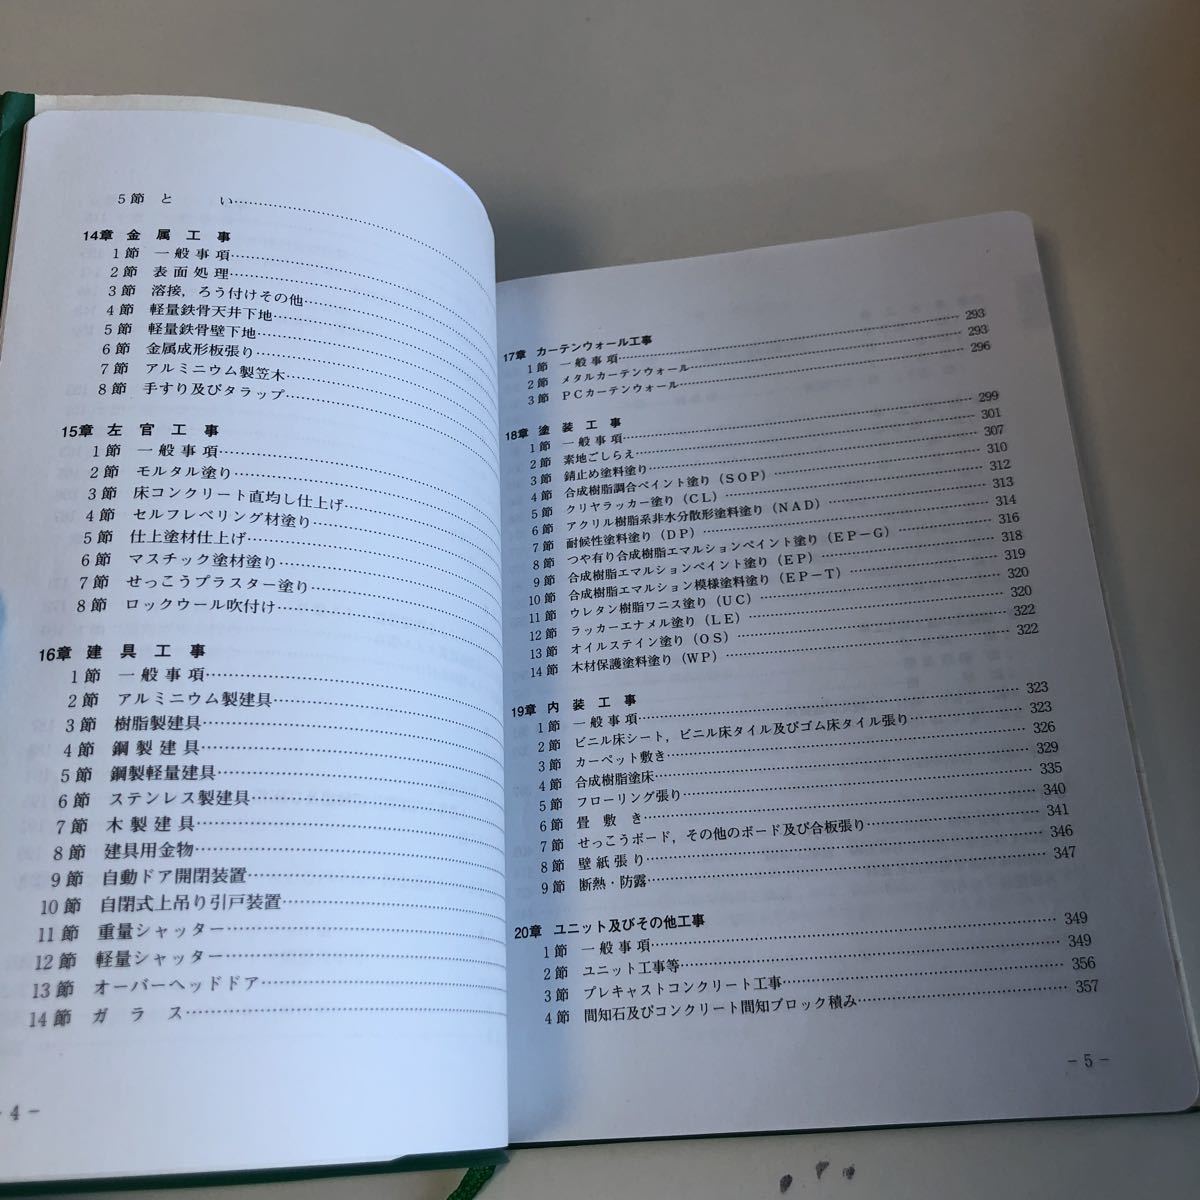 5節 と い
14章 金属工事
1節 一般事項
2節 表面処理
3節 溶接,ろう付けその他
4節 軽量鉄骨天井下地
5節 軽量鉄骨壁下地
6節 金属成形板張り
7節 アルミニウム製笠木
8節 手すり及びタラップ
15章 左官工事
1節 一般事項
2節 モルタル塗り
3節 床コンクリート直均し仕上げ
4節 セルフレベリング材塗り
5節 仕上塗材仕上げ
6節 マスチック塗材塗り
7節 せっこうプラスター塗り
8節 ロックウール吹付け
16章 建具工事
1節 一般事項
2節 アルミニウム製建具
3節 樹脂製建具
4節 鋼製建具
5節 鋼製軽量建具
6節 ステンレス製建具
7節 木製建具
8節 建具用金物
9節 自動ドア開閉装置
10節 自閉式上吊り引戸装置
11節 重量シャッター
12節 軽量シャッター
13節 オーバーヘッドドア
14節 ガラス
- 4 -
17章 カーテンウォール工事
1節 一般事項 293
2節 メタルカーテンウォール 293
3節 PCカーテンウォール 296
18章 塗装工事
1節 一般事項 299
2節 素地ごしらえ 301
3節 錆止め塗料塗り 307
4節 合成樹脂調合ペイント塗り(SOP) 310
5節 クリヤラッカー塗り(CL) 312
6節 アクリル樹脂系非水分散形塗料塗り(NAD) 313
7節 耐候性塗料塗り(DP) 314
8節 つや有り合成樹脂エマルションペイント塗り(EP-G) 316
9節 合成樹脂エマルションペイント塗り(EP) 318
10節 合成樹脂エマルション模様塗料塗り(EP-T) 319
11節 ウレタン樹脂ワニス塗り(UC) 320
12節 ラッカーエナメル塗り(LE) 320
13節 オイルステイン塗り(OS) 322
14節 木材保護塗料塗り(WP) 322
19章 内装工事
1節 一般事項 323
2節 ビニル床シート,ビニル床タイル及びゴム床タイル張り 323
3節 カーペット敷き 326
4節 合成樹脂塗床 329
5節 フローリング張り 335
6節 畳敷き 340
7節 せっこうボード,その他のボード及び合板張り 341
8節 壁紙張り 346
9節 断熱・防露 347
20章 ユニット及びその他工事
1節 一般事項 349
2節 ユニット工事等 349
3節 プレキャストコンクリート工事 356
4節 間知石及びコンクリート間知ブロック積み 357
- 5 -